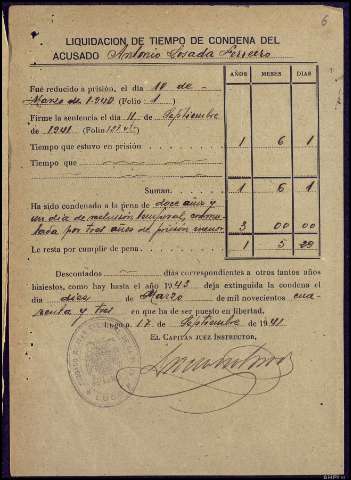 6
LIQUIDACION DE TIEMPO DE CONDENA DEL
ACUSADO Antonio Losada Ferreiro
AÑOS MESES DIAS
Fué reducido a prisión, el día 10 de
Marzo de 1.940 (Folio 1)
Firme la sentencia el día 11 Septiembre
de 1941 (Folio
Tiempo que estuvo en prisión 1 6 1
Tiempo que
Suman. 1 6 1
Ha sido condenado a la pena de doce años y
un día de reclusión temporal, conmu-
tada por tres años de prisión menor. 3 00 00
Le resta por cumplir de pena 1 5 29
Descontados días correspondientes a otros tantos años
bisiestos, como hay hasta el año 1943 deja extinguida la condena el
día diez de Marzo de mil novecientos cua-
renta y tres en que ha de ser puesto en libertad.
Lugo a 17 de Septiembre de 1941
EL CAPITÁN JUEZ INSTRUCTOR,